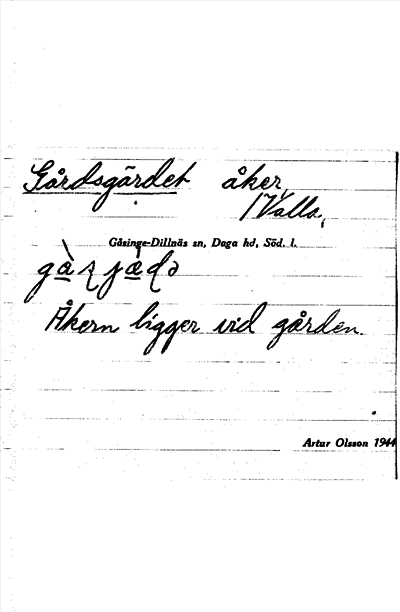 Gårdsgärdet åker
Valla,
Gåsinge-Dillnäs sn, Daga hd, Söd. l.
Åkern ligger vid gården.
Artur Olsson 1944